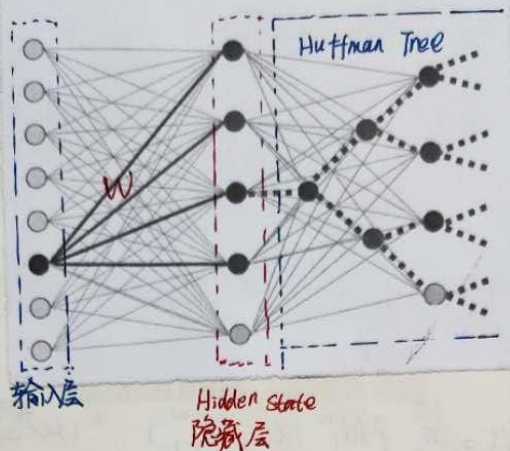 Huffman Tree
W
输入层
Hidden state
隐藏层